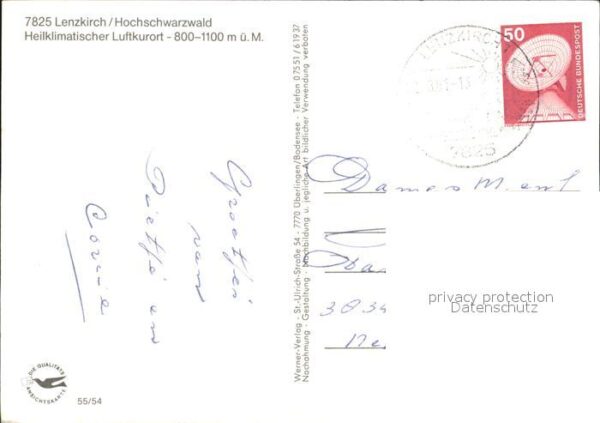 7825 Lenzkirch/Hochschwarzwald
Heilklimatischer Luftkurort - 800–1100 m ü. M.
Groetjes
van
Pietje en
Corrie
DIE QUALITÄTS
ANSICHTSKARTE
55/54
Werner-Verlag - St.-Ulrich-Straße 54 - 7770 Überlingen/Bodensee - Telefon 07551/61937
Nachahmung - Gestaltung - Nachbildung u. jegliche Art bildlicher Verwendung verboten
LENZKIRCH
7825
50
DEUTSCHE BUNDESPOST
privacy protection
Datenschutz